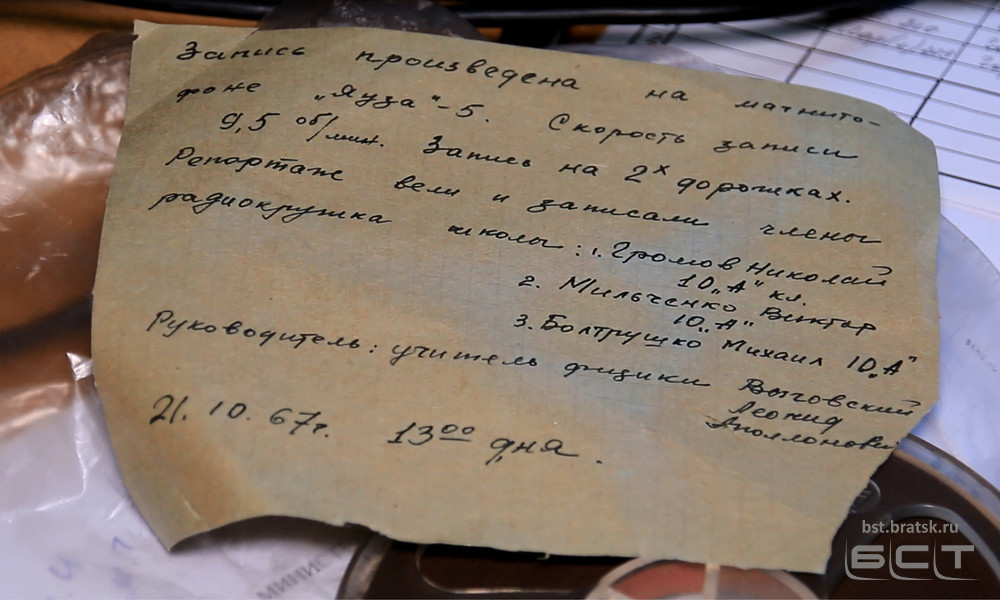 Запись произведена на магнито-
фоне „Яуза"-5. Скорость записи
9,5 об/мин. Запись на 2х дорожках.
Репортаж вели и записали члены
радиокружка школы: 1. Громов Николай
10 „А" кл.
2. Мильченко Виктор
10 „А"
3. Болтрушко Михаил 10 „А"
Руководитель: учитель физики Выговский
Леонид
Аполлонович
21. 10. 67г. 13 00 дня.
bst.bratsk.ru
БСТ